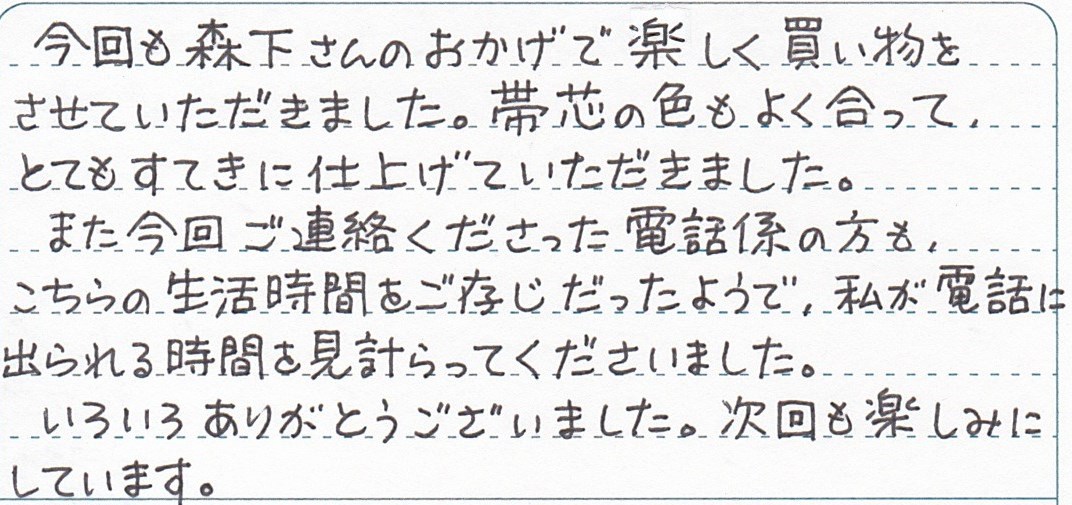 今回も森下さんのおかげで楽しく買い物を
させていただきました。帯芯の色もよく合って、
とてもすてきに仕上げていただきました。
また今回ご連絡くださった電話係の方も、
こちらの生活時間をご存じだったようで、私が電話に
出られる時間を見計らってくださいました。
いろいろありがとうございました。次回も楽しみに
しています。